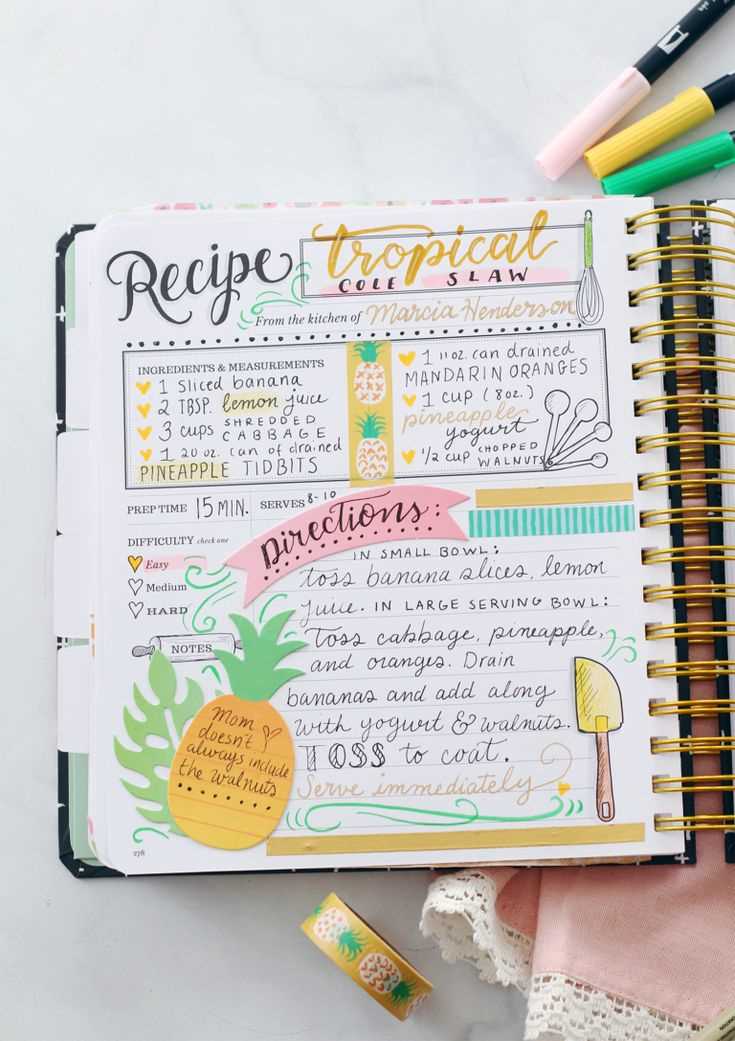 Recipe
tropical
COLE SLAW
From the kitchen of Marcia Henderson
INGREDIENTS & MEASUREMENTS
1 sliced banana
2 TBSP. lemon juice
3 cups SHREDDED CABBAGE
1 20 oz. can of drained
PINEAPPLE TIDBITS
1 11 oz. can drained
MANDARIN ORANGES
1 CUP (8oz.)
pineapple
yogurt
1/2 cup CHOPPED WALNUTS
PREP TIME 15 MIN. SERVES 8-10
DIFFICULTY check one
Easy
Medium
HARD
NOTES
Mom
doesn't
always include
the walnuts
Directions:
IN SMALL BOWL:
toss banana slices, lemon
juice. IN LARGE SERVING BOWL:
Toss cabbage, pineapple,
and oranges. Drain
bananas and add along
with yogurt & walnuts.
TOSS to coat.
Serve immediately
276